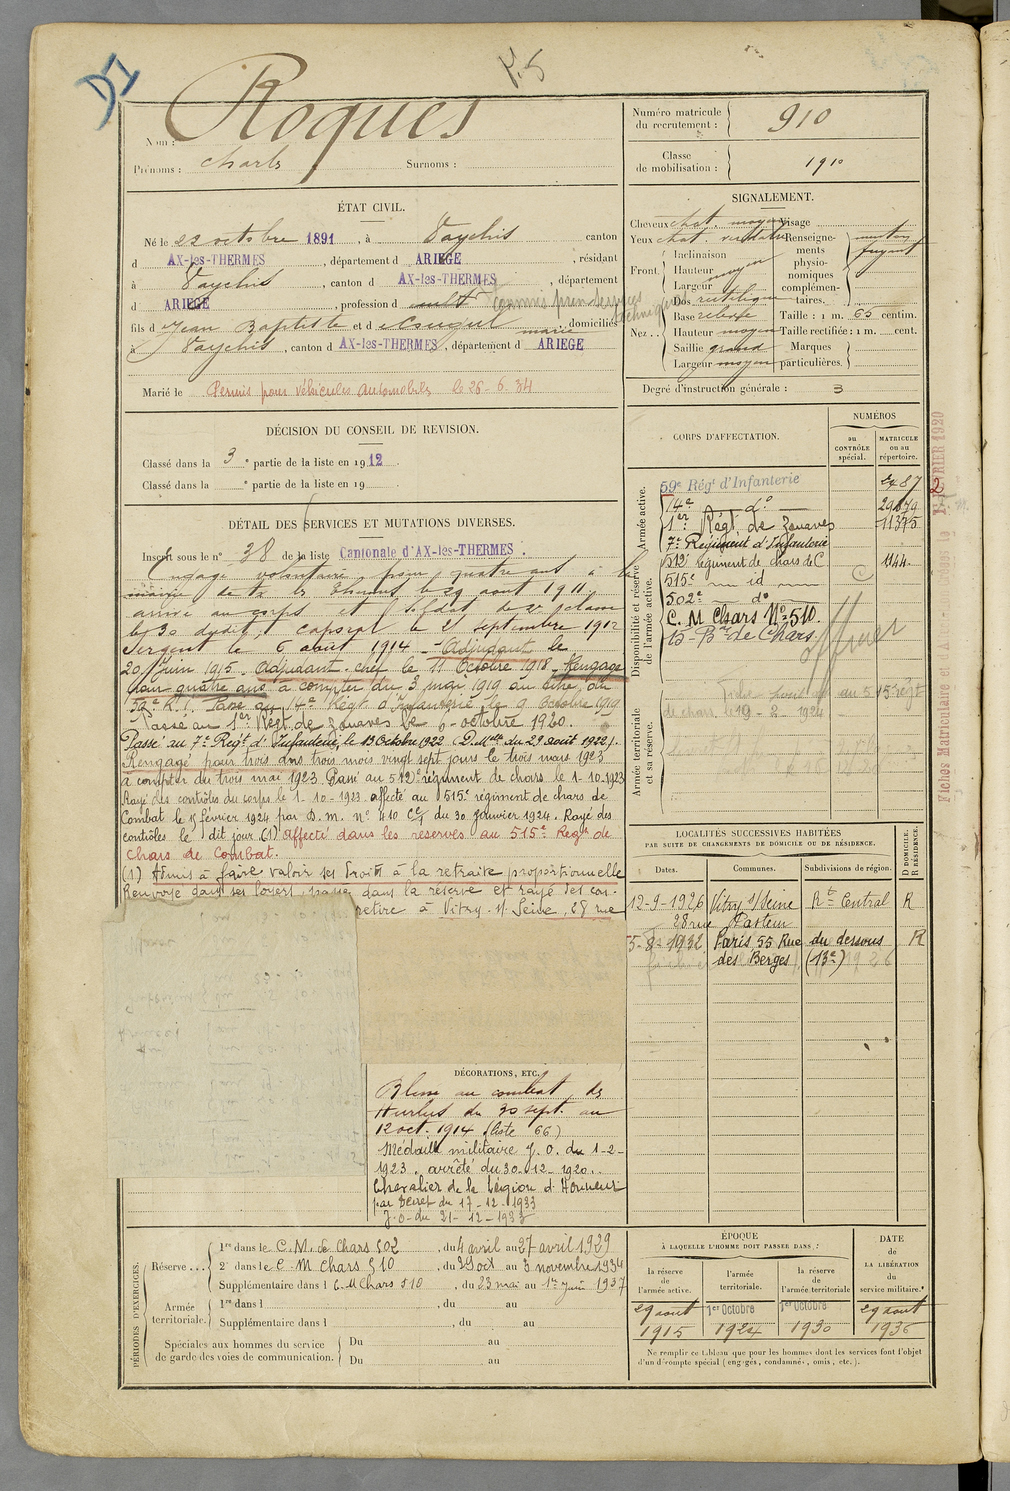 D1
Roques
Nom :
Prénoms : Charles Surnoms :
Numéro matricule du recrutement : 910
Classe de mobilisation : 1910
ÉTAT CIVIL.
Né le 22 octobre 1891, à Vaychis canton
d AX-les-THERMES, département d ARIEGE, résidant
à Vaychis, canton d AX-les-THERMES, département
d ARIEGE, profession d cult Commis
fils d Jean Baptiste et d marie, domiciliés
à Vaychis, canton d AX-les-THERMES, département d ARIEGE
Marié le Permis pour véhicules automobiles le 26-6.34
SIGNALEMENT.
Cheveux chat. moyen Visage
Yeux chat. Renseignements physionomiques complémentaires. menton fuyant
Front. Inclinaison
Hauteur moyen
Largeur
Nez... Dos rectiligne
Base relevée Taille : 1 m. 65 centim.
Hauteur moyen Taille rectifiée : 1 m. cent.
Saillie grand Marques
Largeur moyen particulières.
Degré d'instruction générale : 3
DÉCISION DU CONSEIL DE REVISION.
Classé dans la 3e partie de la liste en 1912.
Classé dans la e partie de la liste en 19
DÉTAIL DES SERVICES ET MUTATIONS DIVERSES.
Inscrit sous le no 38 de la liste Cantonale d'AX-les-THERMES.
Engagé volontaire pour quatre ans à la
mairie de le 29 aout 1911.
arrivé au corps et soldat de 2e classe
le 30 dudit, caporal le 21 septembre 1912
Sergent le 6 août 1914 - Adjudant le
20 juin 1915. Adjudant-chef le 11 Octobre 1918. Rengagé
pour quatre ans à compter du 3 mai 1919 au titre du
59e R.I. Passé au 14e Régt d'Infanterie le 9 Octobre 1919
Passé au 1er Régt de Zouaves le 6 octobre 1920.
Passé au 7e Régt d'Infanterie, le 13 Octobre 1922 (D. Mlle du 29 août 1922).
Rengagé pour trois ans trois mois vingt sept jours le trois mars 1923
à compter du trois mai 1923. Passé au 512e régiment de chars le 1-10-1923
Rayé des contrôles du corps le 1-10-1923 affecté au 515e régiment de chars de
Combat le 15 février 1924 par D. m. no 410 du 30 Janvier 1924. Rayé des
contrôles le dit jour (1) affecté dans les réserves au 515e Régt de
Chars de Combat.
(1) Admis à faire valoir ses droits à la retraite proportionnelle
Renvoyé dans ses foyers, passé dans la réserve et rayé des con-
retire à Vitry s/ Seine, 28 rue
CORPS D'AFFECTATION.
NUMÉROS
au CONTRÔLE spécial.
MATRICULE ou au répertoire.
Armée active.
Disponibilité et réserve de l'armée active.
Armée territoriale et sa réserve.
59e Régt d'Infanterie 2487
14e do
1er Régt de Zouaves 11375
7e Régiment d'Infanterie
512e régiment de chars de C 1144.
515e id
502e do
C. M Chars No 510.
officier
au 515e régt
de chars le 19-2-1924
Fiches Matriculaire et
LOCALITÉS SUCCESSIVES HABITÉES
PAR SUITE DE CHANGEMENTS DE DOMICILE OU DE RÉSIDENCE.
Dates. Communes. Subdivisions de région. D DOMICILE. R RÉSIDENCE.
12-9-1926 Vitry s/Seine Rt Central R
28 rue Pasteur
5-8-1932 Paris 55 Rue du dessous R
des Berges (13e)
DÉCORATIONS, ETC.
Blessé au combat de
Hurlus du 30 sept. au
12 oct. 1914 (liste 66)
Médaille militaire J. O. du 1-2-
1923. arrêté du 30-12-1920.
Chevalier de la Légion d'Honneur
par Décret du 17-12-1933
J-O-du 21-12-1933
PÉRIODES D'EXERCICES.
Réserve... 1re dans le C.M. de Chars 502, du 4 avril au 27 avril 1929
2e dans le C-M Chars 510, du 29 oct au 3 novembre 1934
Supplémentaire dans l C.M Chars 510, du 23 mai au 1er Juin 1937
Armée territoriale. 1re dans l , du au
Supplémentaire dans l , du au
Spéciales aux hommes du service de garde des voies de communication. Du au
Du au
ÉPOQUE
À LAQUELLE L'HOMME DOIT PASSER DANS :
la réserve de l'armée active.
l'armée territoriale.
la réserve de l'armée territoriale.
DATE DE LA LIBÉRATION du service militaire.
29 aout 1915
1er Octobre 1924
1er Octobre 1930
29 aout 1936
Ne remplir ce tableau que pour les hommes dont les services font l'objet
d'un décompte spécial (engagés, condamnés, omis, etc.).